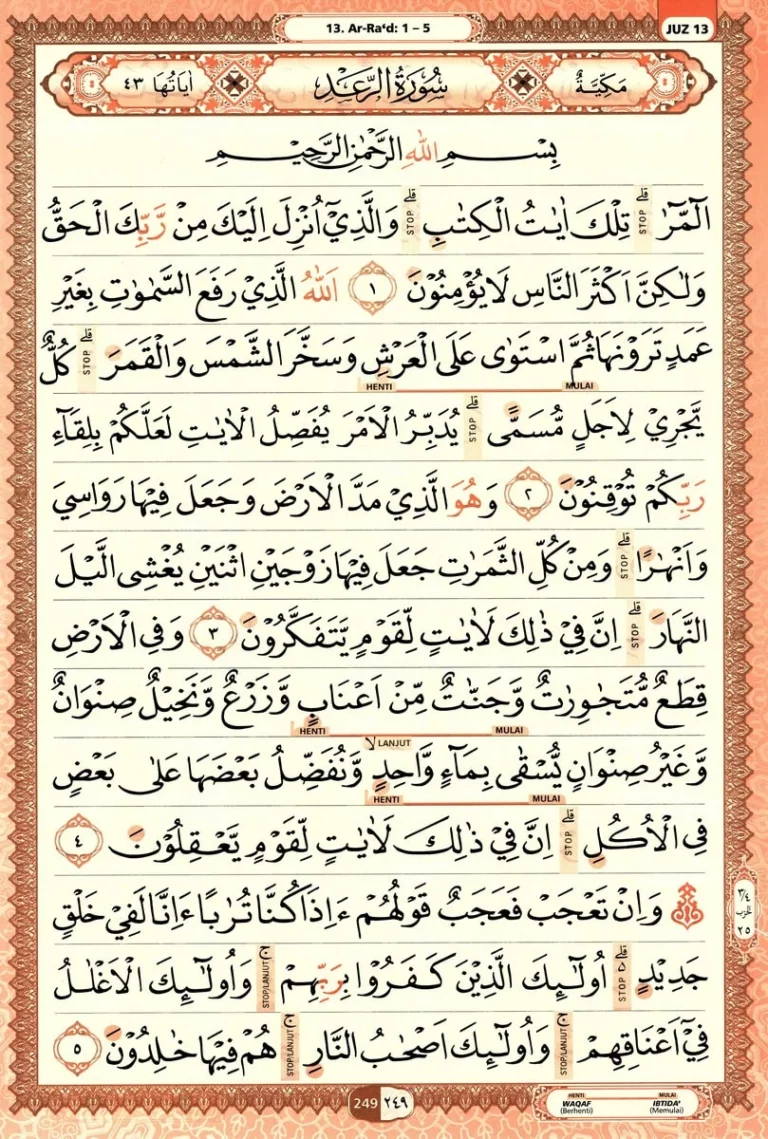 13. Ar-Ra‘d: 1 – 5
JUZ 13
مَكِّيَّةٌ سُوْرَةُ الرَّعْدِ اٰيَاتُهَا ٤٣
بِسْمِ اللّٰهِ الرَّحْمٰنِ الرَّحِيْمِ
الۤمّۤرٰ ۗ STOP تِلْكَ اٰيٰتُ الْكِتٰبِ ۗ STOP وَالَّذِيْٓ اُنْزِلَ اِلَيْكَ مِنْ رَّبِّكَ الْحَقُّ
وَلٰكِنَّ اَكْثَرَ النَّاسِ لَا يُؤْمِنُوْنَ ١ اَللّٰهُ الَّذِيْ رَفَعَ السَّمٰوٰتِ بِغَيْرِ
عَمَدٍ تَرَوْنَهَا ثُمَّ اسْتَوٰى عَلَى الْعَرْشِ وَسَخَّرَ الشَّمْسَ وَالْقَمَرَ ۗ STOP كُلٌّ
MULAI HENTI
يَّجْرِيْ لِاَجَلٍ مُّسَمًّى ۗ STOP يُدَبِّرُ الْاَمْرَ يُفَصِّلُ الْاٰيٰتِ لَعَلَّكُمْ بِلِقَاۤءِ
رَبِّكُمْ تُوْقِنُوْنَ ٢ وَهُوَ الَّذِيْ مَدَّ الْاَرْضَ وَجَعَلَ فِيْهَا رَوَاسِيَ
وَاَنْهٰرًا ۗ STOP وَمِنْ كُلِّ الثَّمَرٰتِ جَعَلَ فِيْهَا زَوْجَيْنِ اثْنَيْنِ يُغْشِى الَّيْلَ
النَّهَارَ ۗ STOP اِنَّ فِيْ ذٰلِكَ لَاٰيٰتٍ لِّقَوْمٍ يَّتَفَكَّرُوْنَ ٣ وَفِى الْاَرْضِ
قِطَعٌ مُّتَجٰوِرٰتٌ وَّجَنّٰتٌ مِّنْ اَعْنَابٍ وَّزَرْعٌ وَّنَخِيْلٌ صِنْوَانٌ
MULAI HENTI
وَّغَيْرُ صِنْوَانٍ يُّسْقٰى بِمَاۤءٍ وَّاحِدٍ ۙ LANJUT وَّنُفَضِّلُ بَعْضَهَا عَلٰى بَعْضٍ
MULAI HENTI
فِى الْاُكُلِ ۗ STOP اِنَّ فِيْ ذٰلِكَ لَاٰيٰتٍ لِّقَوْمٍ يَّعْقِلُوْنَ ٤
۞ وَاِنْ تَعْجَبْ فَعَجَبٌ قَوْلُهُمْ ءَاِذَا كُنَّا تُرٰبًا ءَاِنَّا لَفِيْ خَلْقٍ
٣/٤
الحزب
٢٥
جَدِيْدٍ ەۗ STOP اُولٰۤىِٕكَ الَّذِيْنَ كَفَرُوْا بِرَبِّهِمْ ۚ STOP/LANJUT وَاُولٰۤىِٕكَ الْاَغْلٰلُ
فِيْٓ اَعْنَاقِهِمْ ۚ STOP/LANJUT وَاُولٰۤىِٕكَ اَصْحٰبُ النَّارِ ۚ STOP/LANJUT هُمْ فِيْهَا خٰلِدُوْنَ ٥
249 ٢٤٩
HENTI MULAI
WAQAF IBTIDA’
(Berhenti) (Memulai)